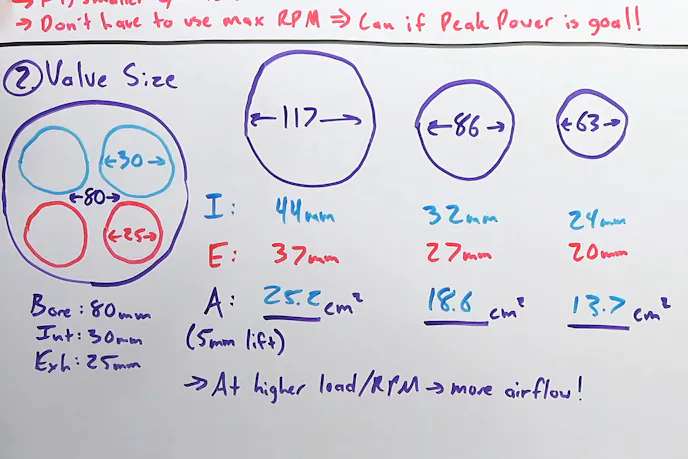 → Don't have to use max RPM ⇒ Can if Peak Power is goal!
② Valve Size
←117→
←86→
←63→
←30→
←80→
←25→
I: 44mm 32mm 24mm
E: 37mm 27mm 20mm
A: 25.2 cm² 18.6 cm² 13.7 cm²
(5mm lift)
Bore: 80mm
Int: 30mm
Exh: 25mm
→ At higher load/RPM → more airflow!